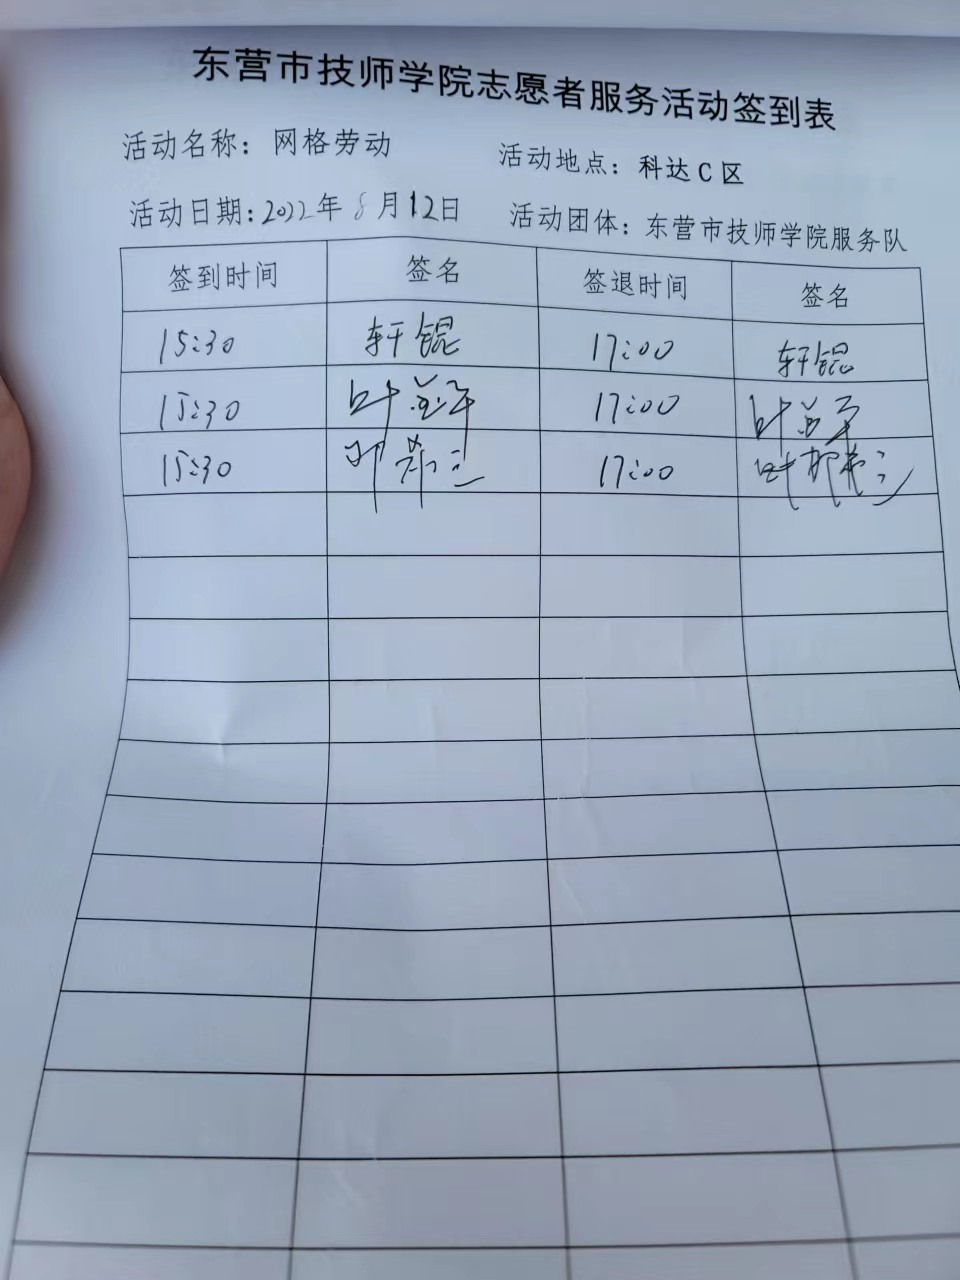 东营市技师学院志愿者服务活动签到表
活动名称：网格劳动 活动地点：科达C区
活动日期：2022年8月12日 活动团体：东营市技师学院服务队
签到时间 签名 签退时间 签名
15:30 轩锟 17:00 轩锟
15:30 叶 17:00 叶
15:30 17:00